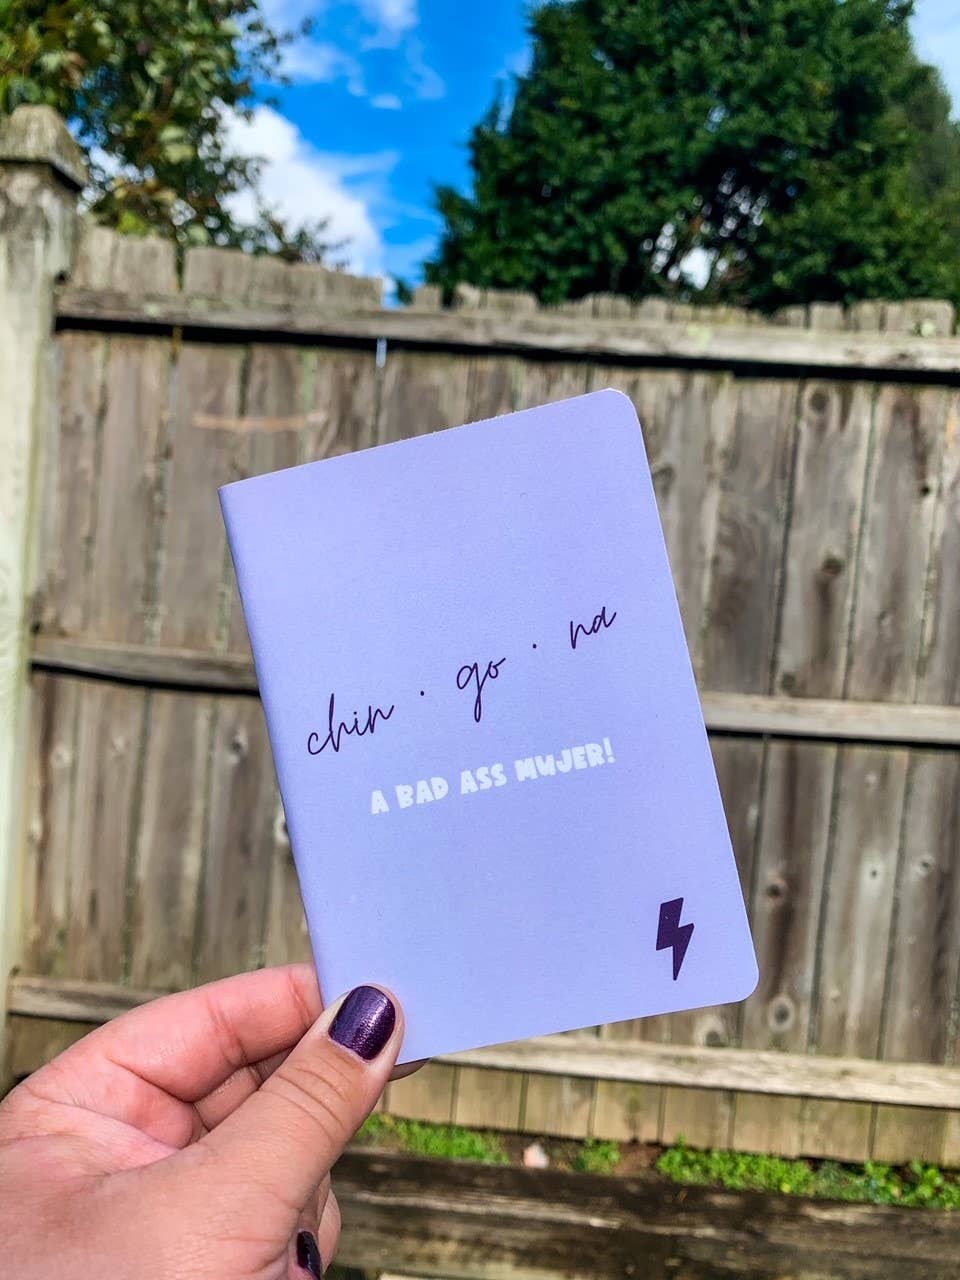 chin · go · na
A BAD ASS MUJER!